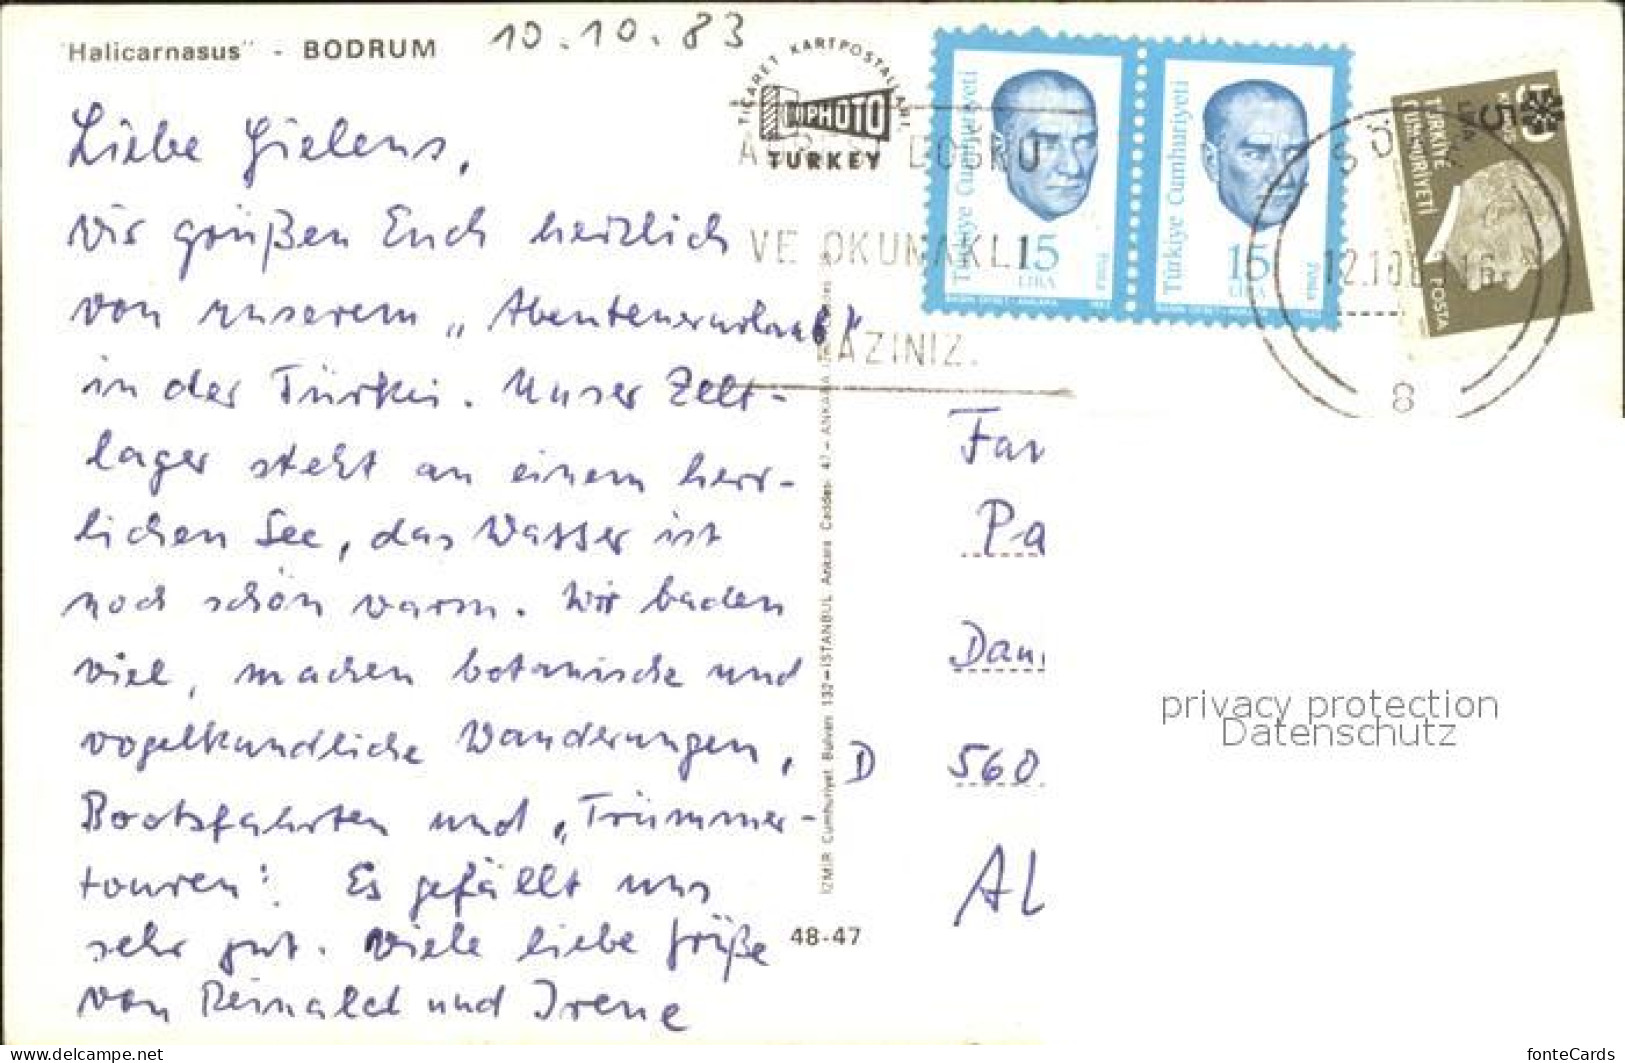 "Halicarnasus" - BODRUM
10.10.83
Liebe Gielens,
wir grüßen Euch herzlich
von unserem „Abenteuerurlaub"
in der Türkei. Unser Zelt-
lager steht an einem herr-
lichen See, das Wasser ist
noch schön warm. Wir baden
viel, machen botanische und
vogelkundliche Wanderungen,
Bootsfahrten und „Trümmer-
touren". Es gefällt uns
sehr gut. Viele liebe Grüße
von Reinald und Irene
TİCARET KARTPOSTALLARI
PHOTO
TURKEY
DOĞRU
VE OKUNAKLI
YAZINIZ.
Türkiye Cumhuriyeti
15
LİRA
Posta
Türkiye Cumhuriyeti
15
LİRA
Posta
5
LİRA
TÜRKİYE
CUMHURİYETİ
POSTA
8
İZMİR Cumhuriyet Bulvarı 132-İSTANBUL Ankara Caddes. 47-ANKARA
48-47
Fam
Pa
Dan
D 560
AL
privacy protection
Datenschutz
www.delcampe.net
fonteCards